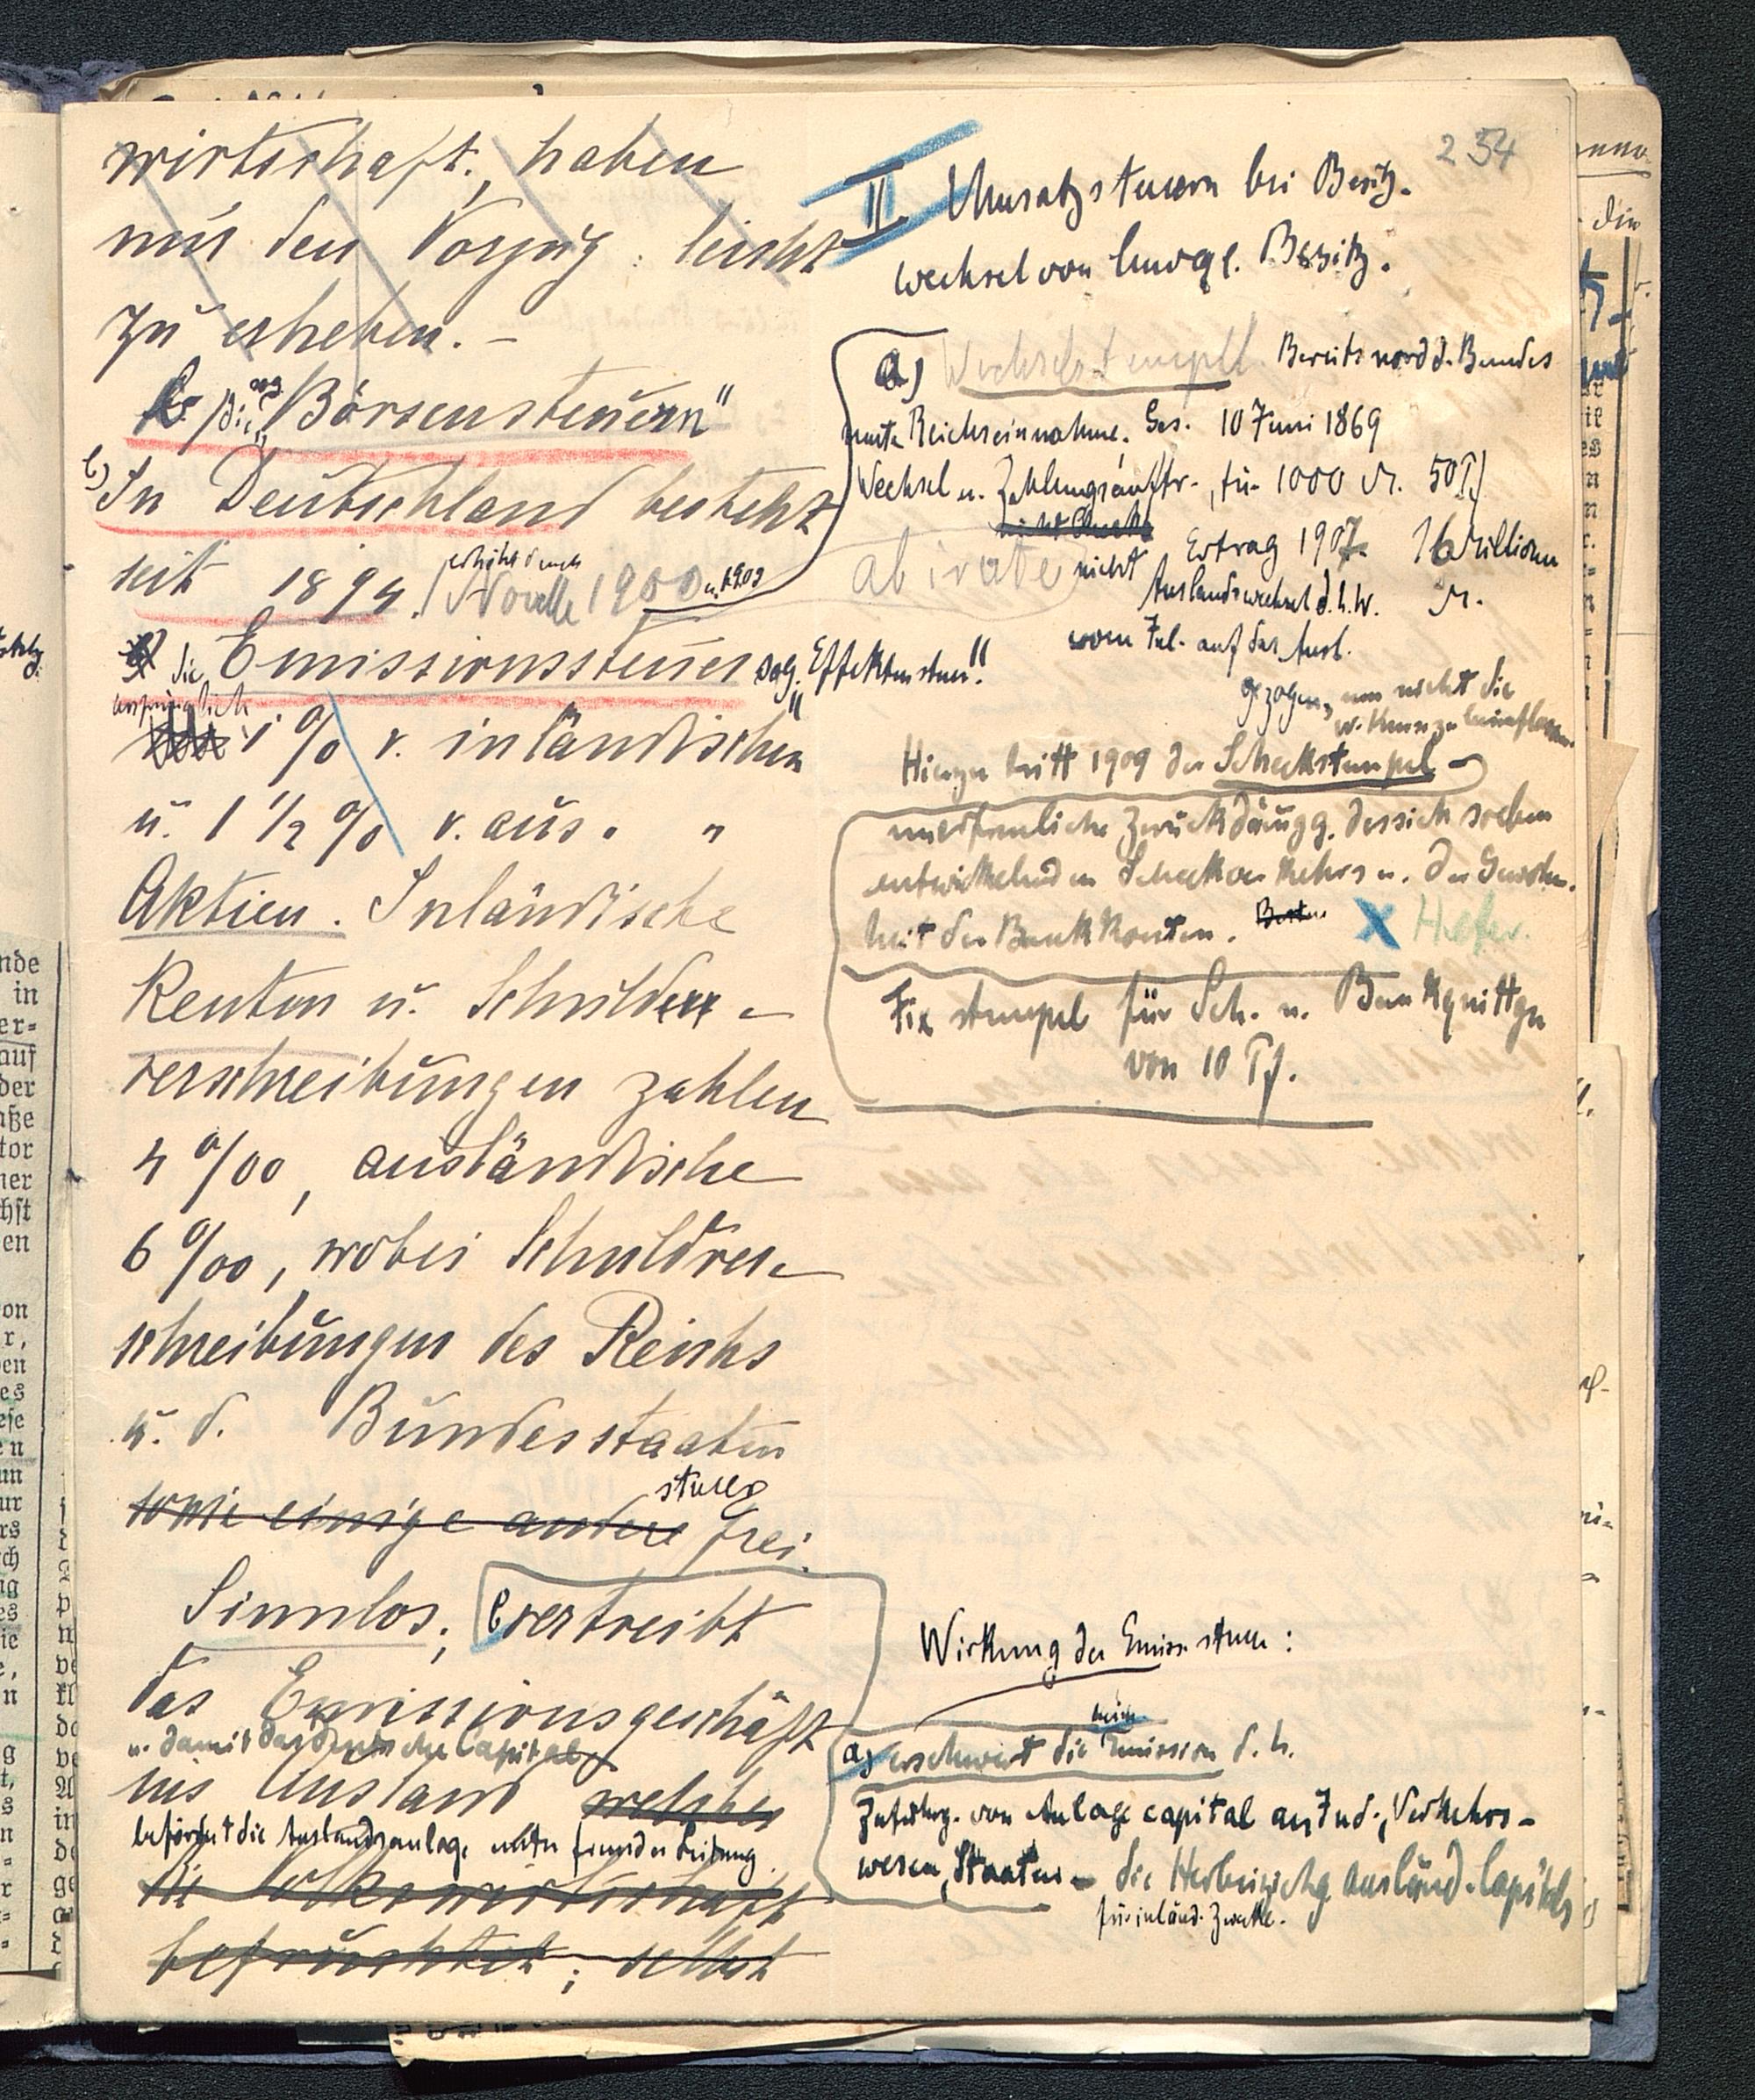 wirtschaft., haben
nur den Vorzug: leicht
zu erheben. -
Die sog. "Börsensteuern"
b) In Deutschland besteht
seit 1894. / erhöht durch Novelle 1900 u. 1909
die Emissionssteuer sog. "Effektensteuer".
ursprünglich 1 % v. inländischen
u. 1 1/2 % v. aus. "
Aktien. Inländische
Renten u. Schulden-
verschreibungen zahlen
4 %00, ausländische
6 %00, wobei Schuldver-
schreibungen des Reichs
u. d. Bundesstaaten
sowie einige andere frei.
Sinnlos; vertreibt
das Emissionsgeschäft
u. damit das deutsche Capital
ins Ausland welches
befördert die Auslandsanlage unter fremder Leitung.
die Volkswirtschaft
befruchtet; selbst
234
II. Umsatzsteuern bei Besitz-
wechsel von bewegl. Besitz.
a) Wechselstempel. Bereits nordd. Bundes
Reichseinnahme. Ges. 10 Juni 1869
Wechsel u. Zahlungsauftr., für 1000 M. 50 Pf
nicht Checks
ab irate nicht Ertrag 1907 16 Millionen
Auslandswechsel d. h. W. M.
vom Inl. auf das Ausl.
gezogen, um nicht die
Hierzu tritt 1909 der Scheckstempel
unerfreuliche Zurückdrängg. des sich soeben
entwickelnden Scheckverkehrs u. der Gewohn-
heit der Bankkonten. X
Fixstempel für Sch. u. Bankquittgn
von 10 Pf.
Wirkung der Emiss.steuer:
a) erschwert die Emission d. h.
Zuführg. von Anlagecapital an Ind., Verkehrs-
wesen, Staaten - die Herbeiziehg ausländ. Capitals
für inländ. Zwecke.